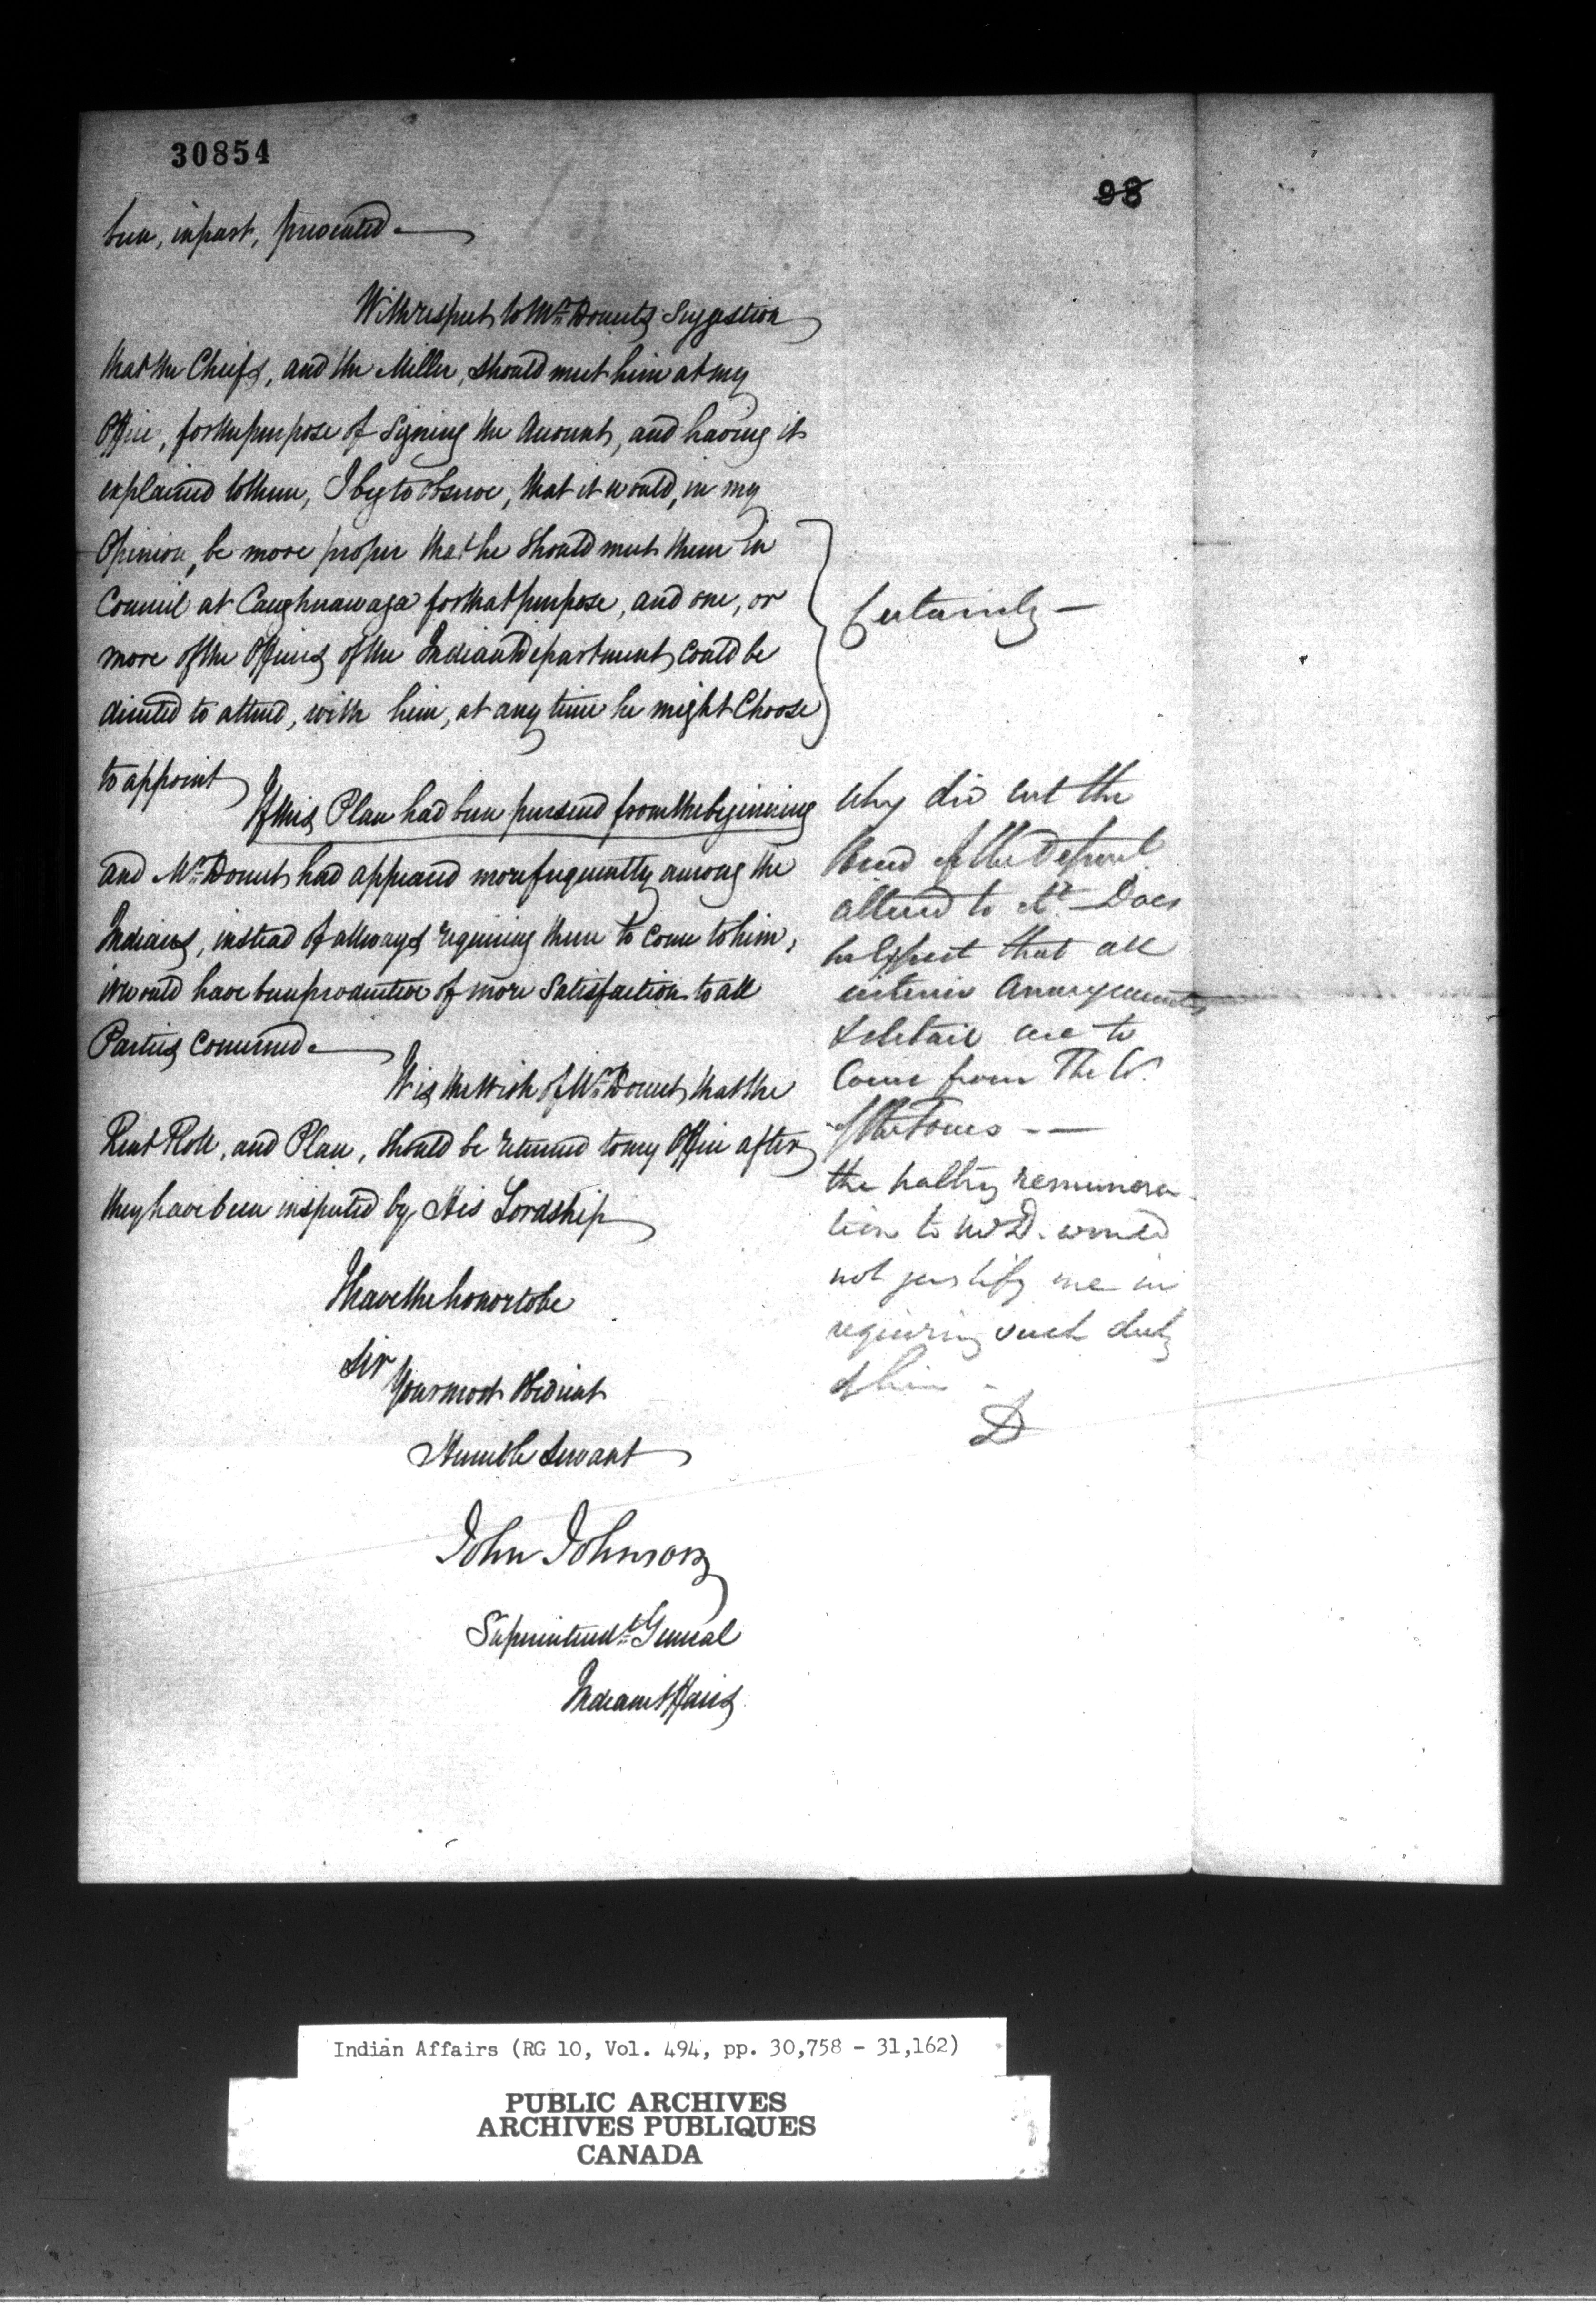 30854
98
been, in part, prevented.
With respect to Mr. Doucets Suggestion
that the Chiefs, and the Miller, should meet him at my
Office, for the purpose of Signing the Account, and having it
explained to them, I beg to observe, that it would, in my
Opinion, be more proper that he Should meet them in
Council at Caughnawaga for that purpose, and one, or
more of the Officers of the Indian Department, could be
directed to attend, with him, at any time he might Choose
to appoint
Certainly —
If this Plan had been pursued from the beginning
and Mr. Doucet had appeared more frequently among the
Indians, instead of allways requiring them to Come to him,
it would have been productive of more Satisfaction to all
Parties Concerned.
It is the Wish of Mr. Doucet, that the
Rent Roll, and Plan, should be returned to my Office after
they have been inspected by His Lordship
I have the honor to be
Sir
Your most Obedient
Humble Servant
John Johnson
Superintendt. General
Indian Affairs
why did not the
Head of the Departt.
attend to it. Does
he Expect that all
interior Arrangements
& detail are to
Come from The Cr.
of the Forces —
the paltry remunera
tion to Mr D. would
not justify me in
requiring such duty
of him -
D
Indian Affairs (RG 10, Vol. 494, pp. 30,758 - 31,162)
PUBLIC ARCHIVES
ARCHIVES PUBLIQUES
CANADA